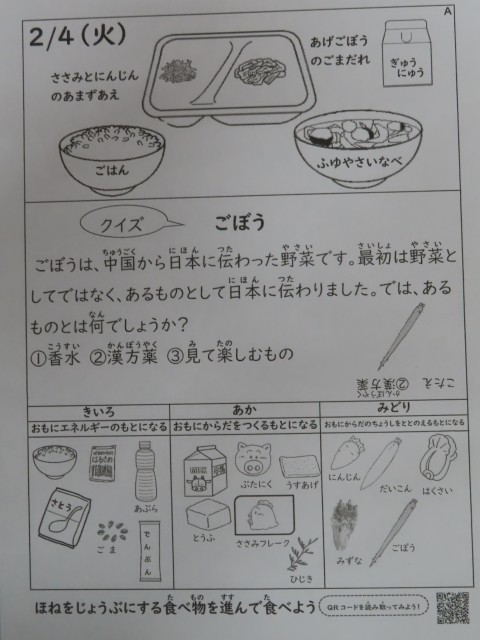 A
2/4(火)
ささみとにんじん
のあまずあえ
あげごぼう
のごまだれ
ぎゅう
にゅう
ごはん
ふゆやさいなべ
クイズ
ごぼう
ちゅうごく にほん つた やさい さいしょ やさい
ごぼうは、中国から日本に伝わった野菜です。最初は野菜と
にほん つた
してではなく、あるものとして日本に伝わりました。では、ある
なん
ものとは何でしょうか?
こうすい かんぽうやく み たの
①香水 ②漢方薬 ③見て楽しむもの
かんぽうやく
こたえ ②漢方薬
きいろ
おもにエネルギーのもとになる
はるさめ
あぶら
さとう
ごま
でんぷん
あか
おもにからだをつくるもとになる
ぶたにく
うすあげ
とうふ
ささみフレーク
ひじき
みどり
おもにからだのちょうしをととのえるもとになる
にんじん
だいこん
はくさい
みずな
ごぼう
た もの すす た
ほねをじょうぶにする食べ物を進んで食べよう
QRコードを読み取ってみよう!